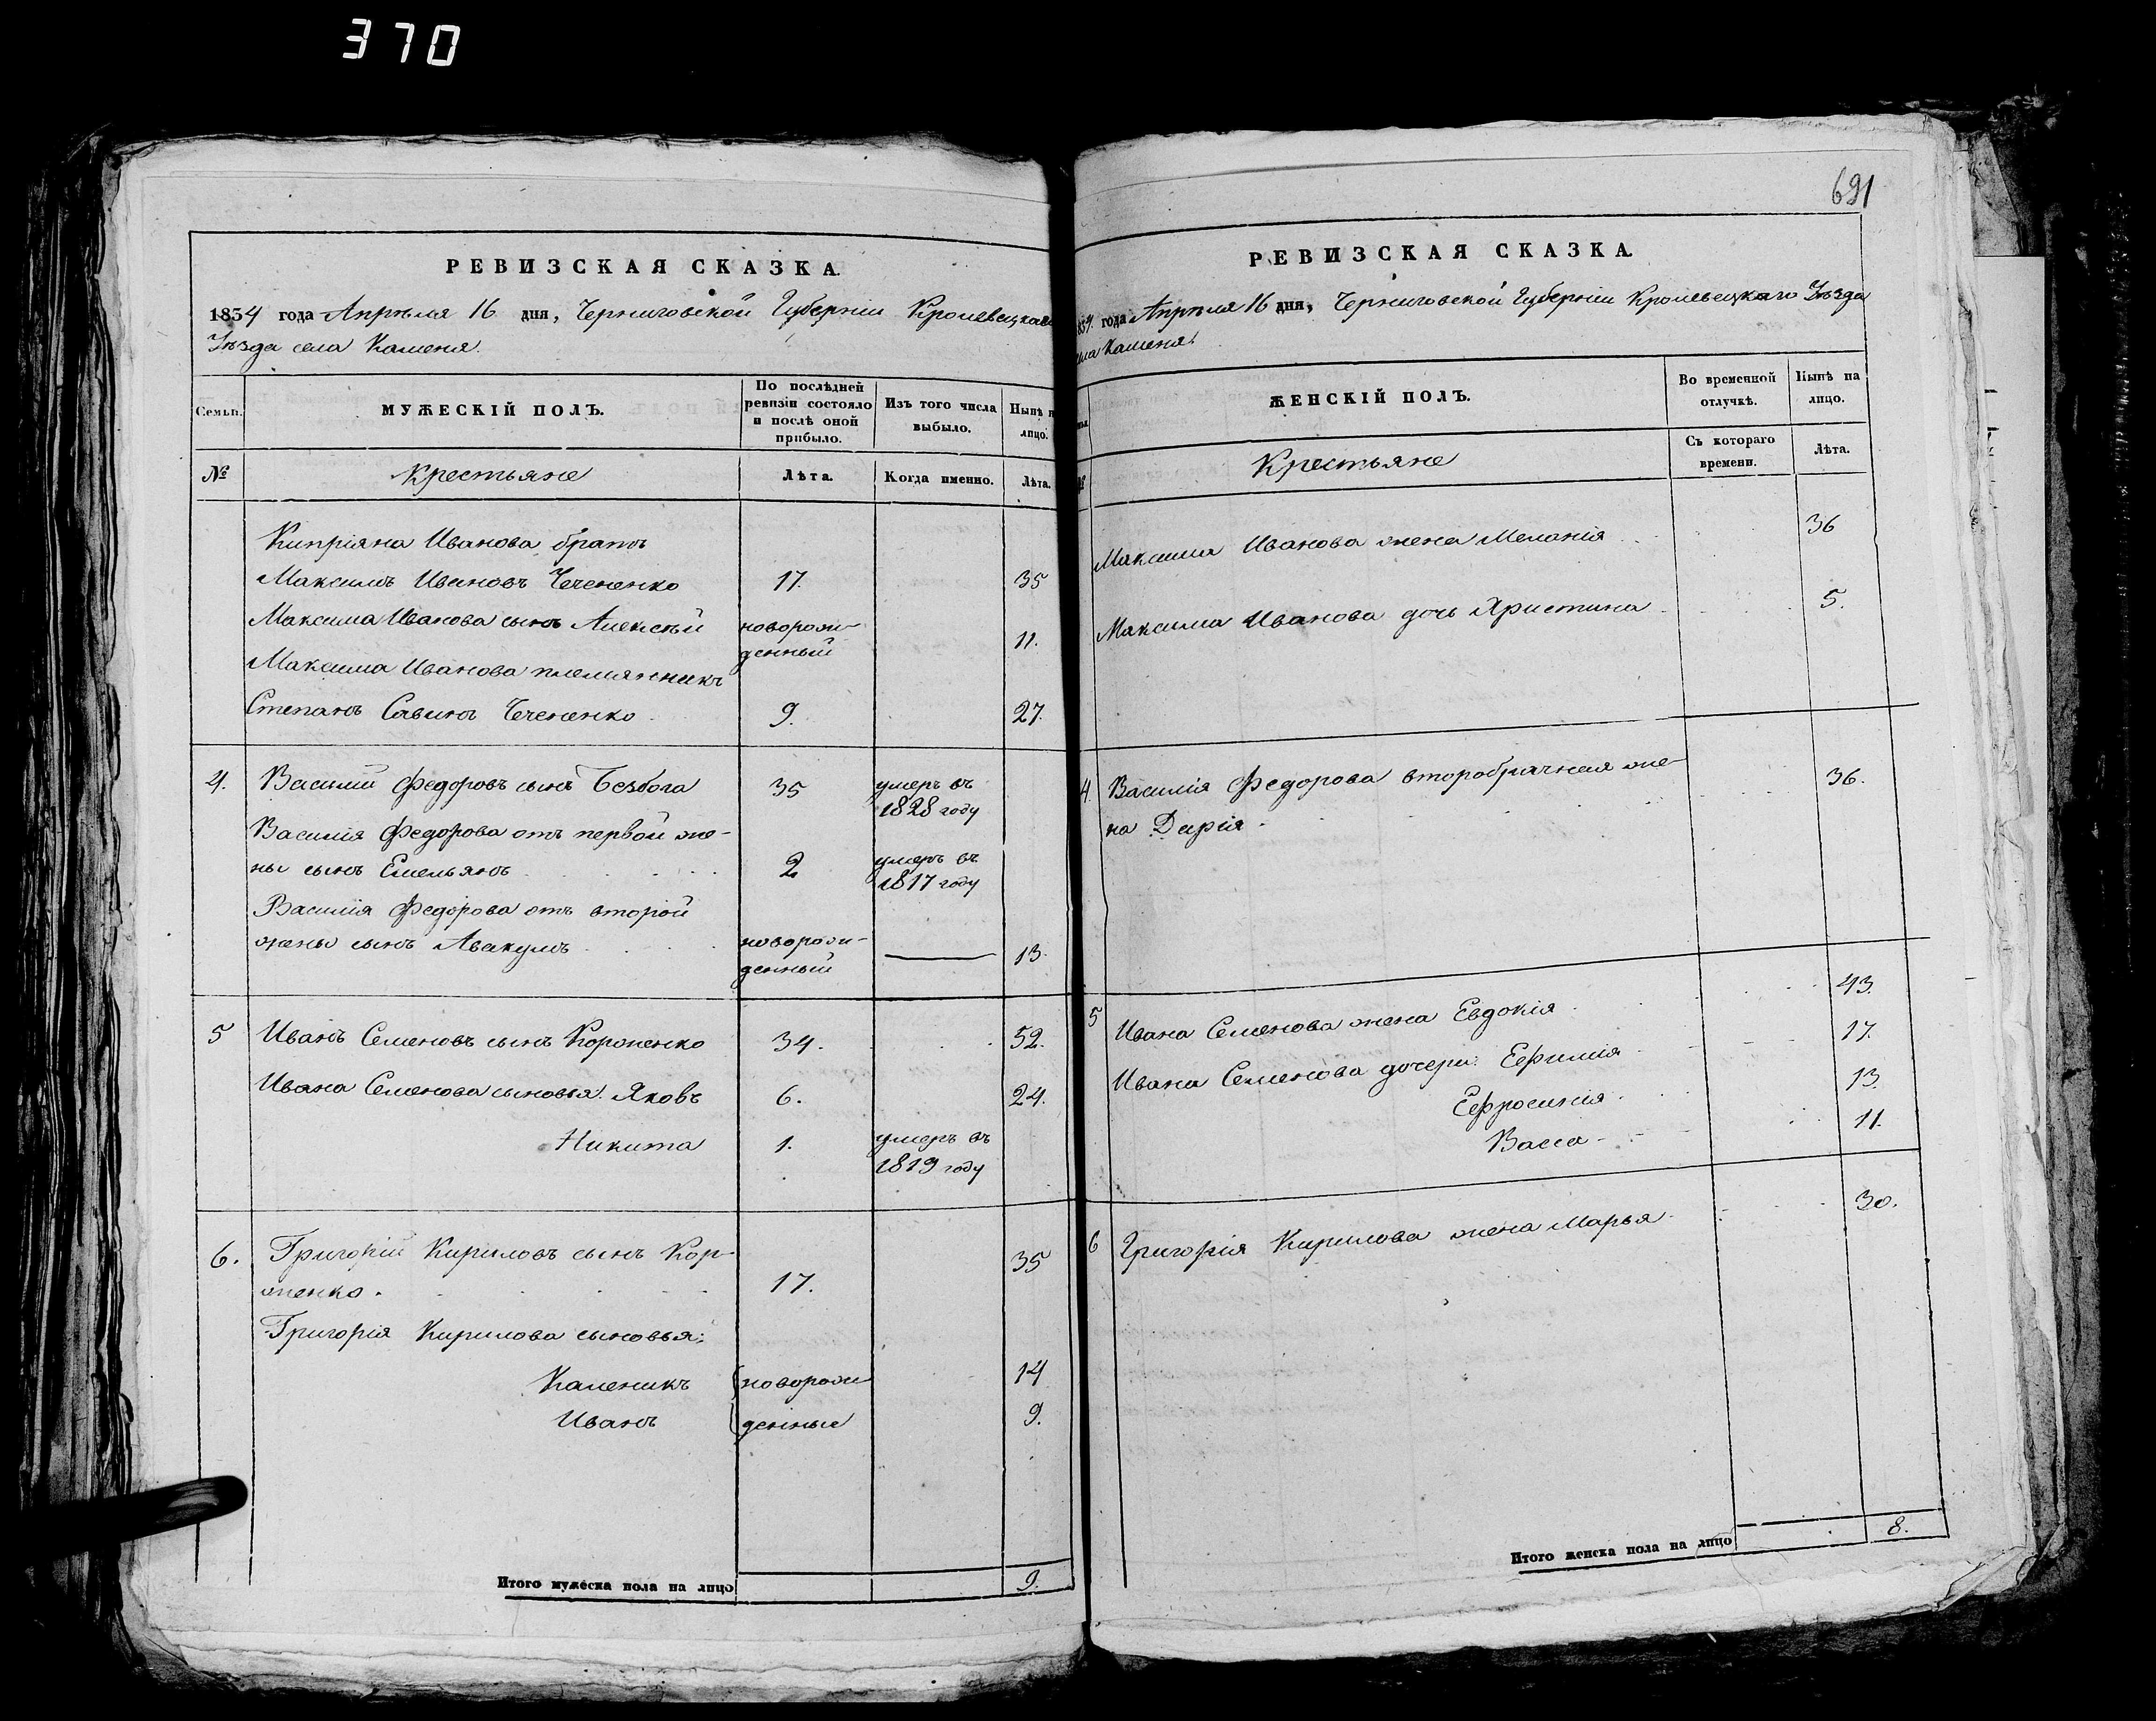 370
РЕВИЗСКАЯ СКАЗКА.
1834 года Апрѣля 16 дня, Черниговской Губерніи Кролевецкаго
Уѣзда села Каменя.
Семьи.
МУЖЕСКІЙ ПОЛЪ.
По послѣдней
ревизіи состояло
и послѣ оной
прибыло.
Изъ того числа
выбыло.
Нынѣ н
лицо.
№
Крестьяне
Лѣта.
Когда именно.
Лѣта.
Кипріяна Иванова братъ
Максимъ Ивановъ Чечененко 17. 35
Максима Иванова сынъ Алексѣй новорож-
денный 11.
Максима Иванова племянникъ
Степанъ Савинъ Чечененко 9. 27.
4. Василий Федоровъ сынъ Безбога 35 умеръ въ
1828 году
Василія Федорова отъ первой же-
ны сынъ Емельянъ 2 умеръ въ
1817 году
Василія Федорова отъ второй
жены сынъ Авакумъ новорож-
денный 13.
5 Иванъ Семеновъ сынъ Корженко 34. 52.
Ивана Семенова сыновья: Яковъ 6. 24.
Никита 1. умеръ въ
1819 году
6. Григорій Кириловъ сынъ Кор-
женко. 17. 35
Григорія Кирилова сыновья:
Каленикъ новорож 14
Иванъ денные 9.
Итого мужеска пола на лицо 9.
691
РЕВИЗСКАЯ СКАЗКА.
834. года Апрѣля 16 дня, Черниговской Губерніи Кролевецкаго Уѣзда
ела Каменя.
ЖЕНСКІЙ ПОЛЪ.
Во временной
отлучкѣ.
Нынѣ на
лицо.
Крестьяне
Съ котораго
времени.
Лѣта.
Максима Иванова жена Меланія 36
Максима Иванова дочь Христина 5.
4. Василія Федорова второбрачная же-
на Дарія 36.
5 Ивана Семенова жена Евдокія 43.
Ивана Семенова дочери: Ефимія 17.
Ефросинія 13.
Васса 11.
6 Григорія Кирилова жена Марья 30.
Итого женска пола на лицо 8.